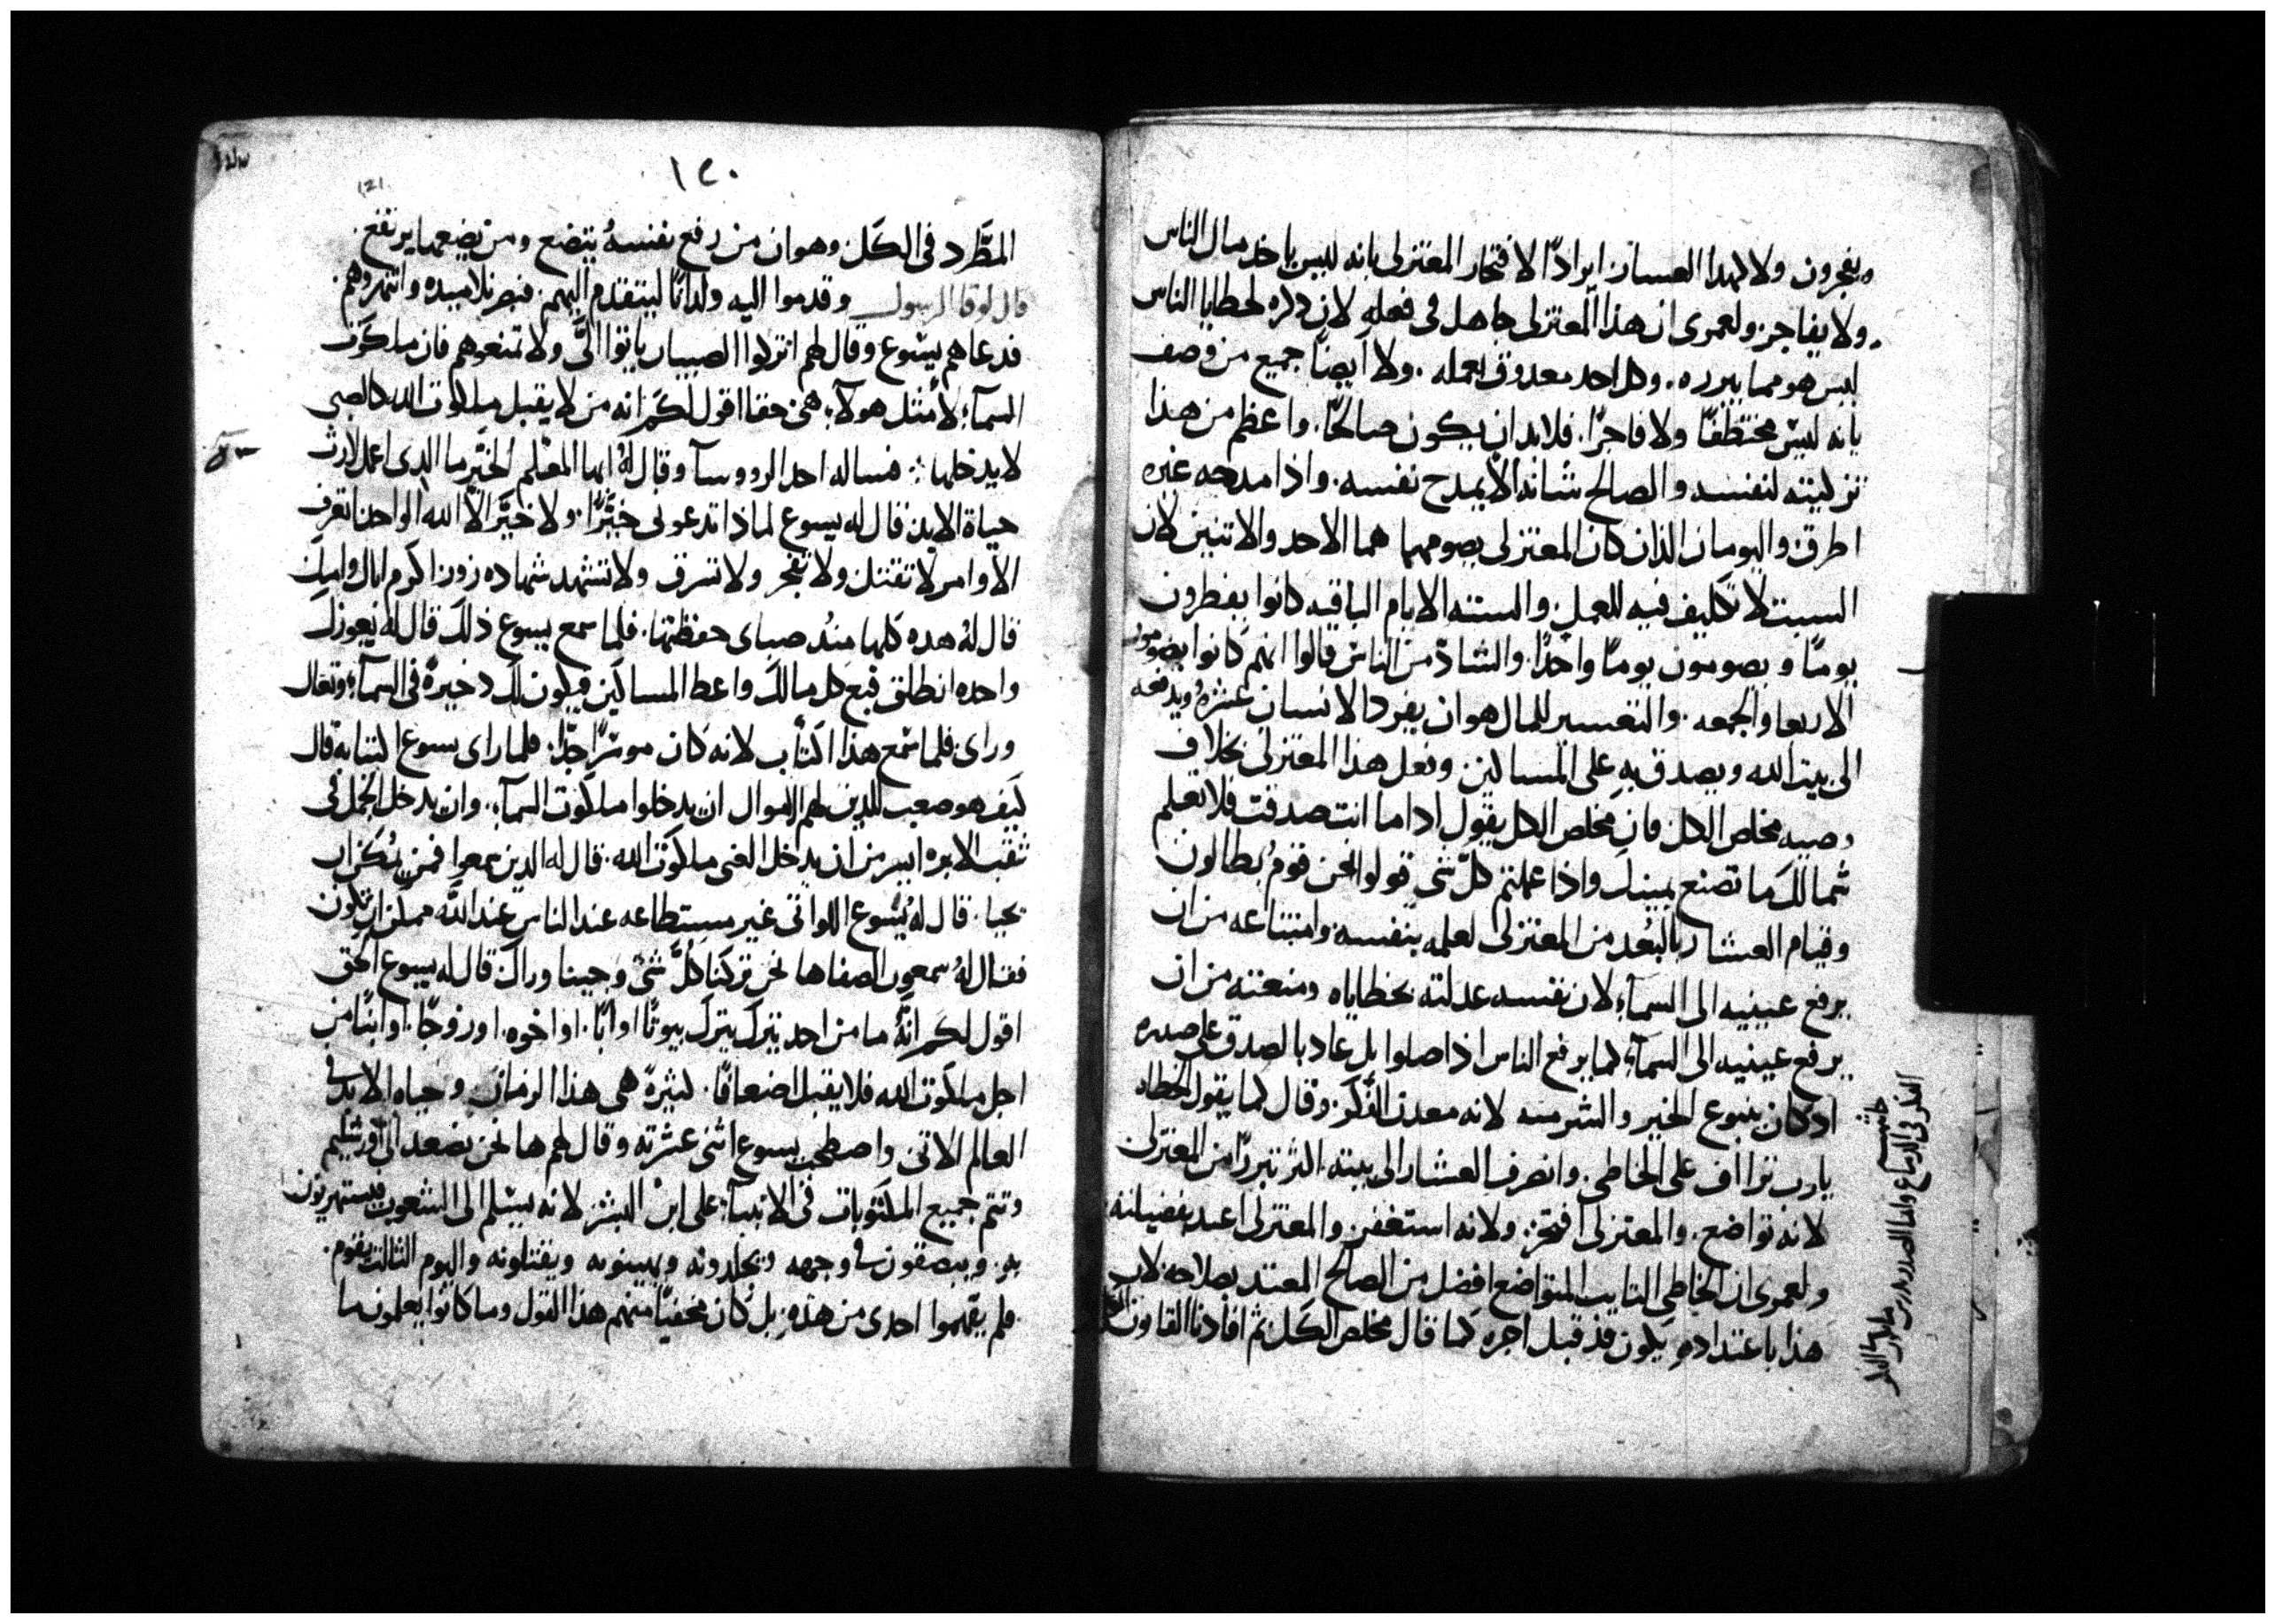 ويفجرون ولا لهذا العسان ايرادًا لافتخار المعتزلى بانه ليس ياخد مال الناس
ولا يفاجر ولعمرى ان هذا المعتزلى جاهل فى فعله لان ذكره لخطايا الناس
ليس هو مما يبرره. وكل احد معدوق بعمله. ولا ايضًا جميع من وصف
بانه ليس مختطفًا ولا فاجرًا. فلابد ان يكون صالحًا. واعظم من هذا
تزكيته لنفسه والصالح شانه الا يمدح نفسه. واذا مدحه غيره
اطرق واليومان الذان كان المعتزلى يصومهما هما الاحد والاتنين لان
السبت لا تكليف فيه للعمل والستة الايام الباقيه كانوا يفطرون
يومًا ويصومون يومًا واحدًا. والشاذ من الناس قالوا انهم كانوا يصومون
الاربعا والجمعه. والتعسير للمال هو ان يفرد الانسان عشره ويدفعه
الى بيت الله ويصدق به على المساكين وفعل هذا المعتزلى بخلاف
وصيه مخلص الكل فان مخلص الكل يقول اذا ما انت صدقت فلا تعلم
شمالك ما تصنع يمينك واذا عملتم كل شى قولوا نحن قوم بطالون
وقيام العشار بالبعد من المعتزلى لعلمه بنفسه وامتناعه من ان
يرفع عينيه الى السمآء لان نفسه عدلته بخطاياه ومنعته من ان
يرفع عينيه الى السمآء كما يرفع الناس اذا صلوا بل عاد بالصدق على صدره
اذ كان ينبوع الخير والشر منه لانه معدن الفكر. وقال كما يقول الخطاه
يا رب تراأف على الخاطى. وانصرف العشار الى بيته اكثر تبررًا من المعتزلى
لانه تواضع. والمعتزلى افتخر. ولانه استغفر والمعتزلى اعتد بفضيلته
ولعمرى ان الخاطى التايب المتواضع افضل من الصالح المعتد بصلاحه لان
هذا باعتداده يكون قد قبل اجره كما قال مخلص الكل ثم افادنا القانون
حاشيه
الفكر فى الدماغ واما الصدر
١٢٠
121
المطَّرد فى الكل وهو ان من رفع نفسه يتضع ومن يضعها يرتفع.
قال لوقا الرسول وقدموا اليه ولدانًا ليتقدم اليهم. فبصر تلاميده وانتهروهم.
فدعاهم يسوع وقال لهم اتركوا الصبيان ياتوا الىَّ ولا تمنعوهم فان ملكوت
السمآء لأمثل هولآء هى حقا اقول لكم انه من لا يقبل ملكوت الله كالصبى
لا يدخلها. فساله احد الرووسآ وقال له ايها المعلم الخير ما الدى اعمل لارث
حياة الابد قال له يسوع لماذا تدعونى خيّرًا. ولا خيّر الّا الله الواحد اتعرف
الأوامر لا تقتل ولا تفجر ولا تسرق ولا تشهد شهاده زور اكرم اباك وامك
قال له هده كلها مند صباى حفظتها. فلما سمع يسوع ذلك قال له يعوزك
واحده انطلق فبع كل مالك واعط المساكين فيكون لك ذخيرة فى السمآء وتعال
وراى فلما سمع هذا اكتأب لانه كان موسرًا جدًا. فلما راى يسوع اكتئابه قال
كيف هو صعب للدين لهم الاموال ان يدخلوا ملكوت السمآء. وان يدخل الجمل فى
ثقب الابره ايسر من ان يدخل الغنى ملكوت الله. قال له الدين سمعوا فمن يمكن ان
يحيا. قال له يسوع اللواتى غير مستطاعه عند الناس عند الله ممكن ان تكون
فقال له سمعون الصفا ها نحن تركنا كلَّ شىٍ وجينا وراك قال له يسوع الحق
اقول لكم انه ما من احد يترك يترك بيوتًا او ابًا. او اخوه. او زوجًا. او ابنًا من
اجل ملكوت الله فلا يقبل اضعافًا. كثيرة فى هذا الزمان وحياه الابد فى
العالم الاتى واصطحب يسوع اثنى عشرته وقال لهم ها نحن نصعد الى اورشليم
وتتم جميع المكتوبات فى الانبيآء على ابن البشر لانه يسلم الى الشعوب فيستهزئون
به. ويبصقون فى وجهه ويجلدونه ويهينونه ويقتلونه واليوم الثالث يقوم.
فلم يفهموا احدى من هذه. بل كان مخفيًا منهم هذا القول وما كانوا يعلمون ما